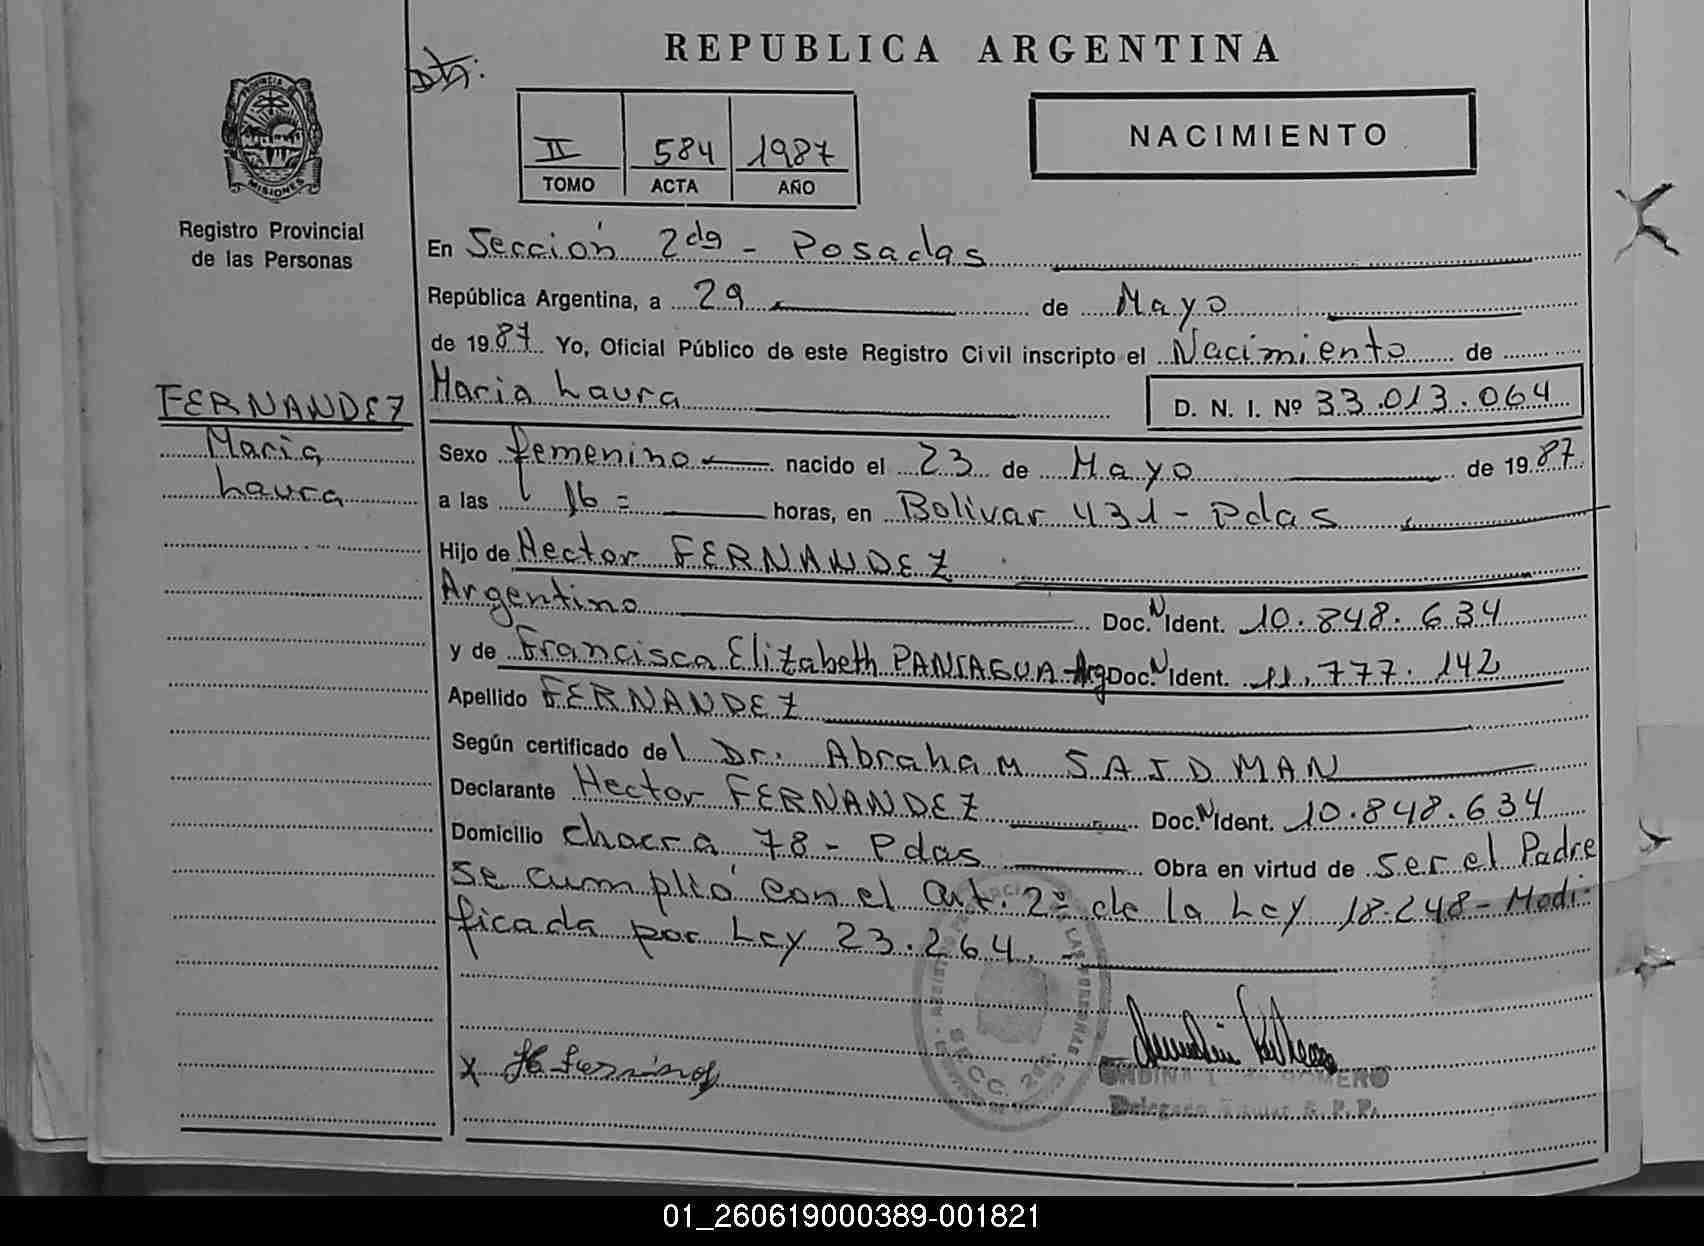 REPUBLICA ARGENTINA
PROVINCIA DE
MISIONES
Registro Provincial
de las Personas
II 584 1987
TOMO ACTA AÑO
NACIMIENTO
En Sección 2da - Posadas
República Argentina, a 29 de Mayo
de 1987 Yo, Oficial Público de este Registro Civil inscripto el Nacimiento de
Maria Laura D. N. I. Nº 33.013.064
FERNANDEZ
Maria
Laura
Sexo femenino nacido el 23 de Mayo de 1987
a las 16= horas, en Bolivar 431 - Pdas
Hijo de Hector FERNANDEZ
Argentino Doc. N Ident. 10.848.634
y de Francisca Elizabeth PANIAGUA - Arg Doc. N Ident. 11.777.142
Apellido FERNANDEZ
Según certificado del Dr. Abraham SAIDMAN
Declarante Hector FERNANDEZ Doc. N Ident. 10.848.634
Domicilio chacra 78 - Pdas Obra en virtud de ser el Padre
Se cumplió con el art. 2º de la Ley 18.248 - Modi-
ficada por Ley 23.264. -
SECC. 2da.
x
ROMERO
Delegado Titular R. P. P.
01_260619000389-001821